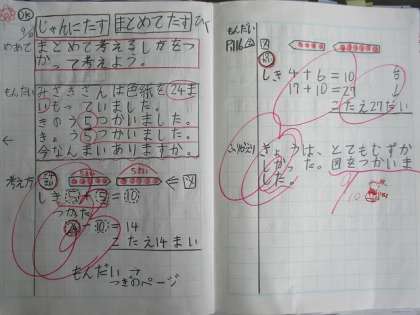 じゅんにたす まとめてたす
めあて
まとめて考えるしきをつ
かって考えよう。
もんだい
みさきさんは色紙を24ま
いもっていました。
きのう5つかいました。
きょう5つかいました。
今なんまいありますか。
考え方
しき 5+5=10
つかった
24-10=14
こたえ14まい
もんだい→
つぎのページ
もんだい
しき 4+6=10
17+10=27
こたえ27だい
ふりかえり
きょうは、とてもむずか
しかった。図をつかいま
した。